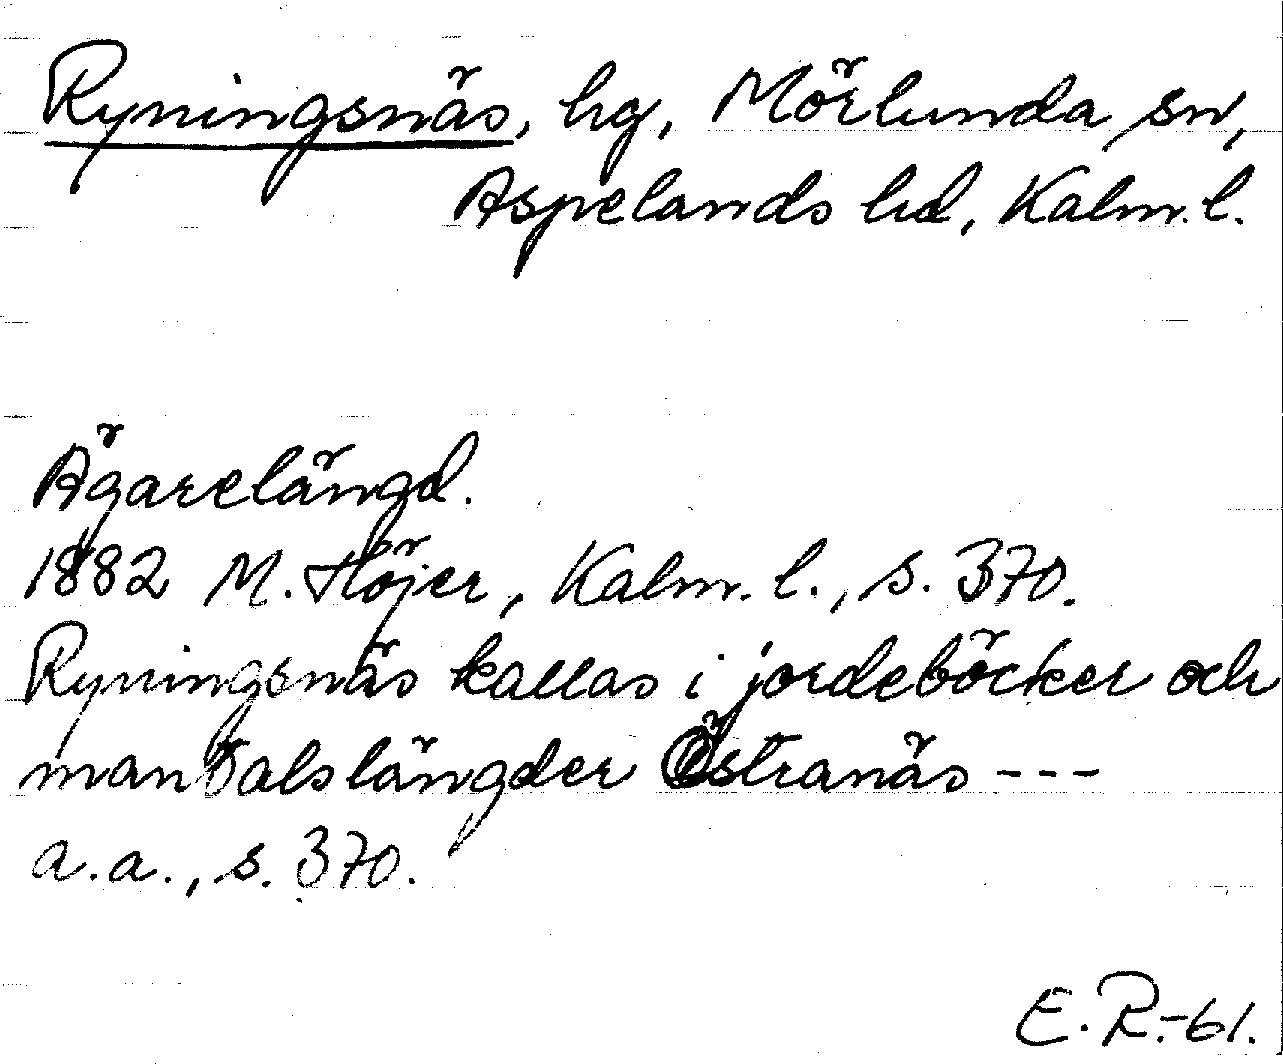 Ryningsnäs, hg, Mörlunda sn,
Aspelands hd, Kalm. l.
Ägarelängd.
1882 M. Höjer, Kalm. l., s. 370.
Ryningsnäs kallas i jordeböcker och
mantalslängder Östranäs ---
a.a., s. 370.
E. R.-61.